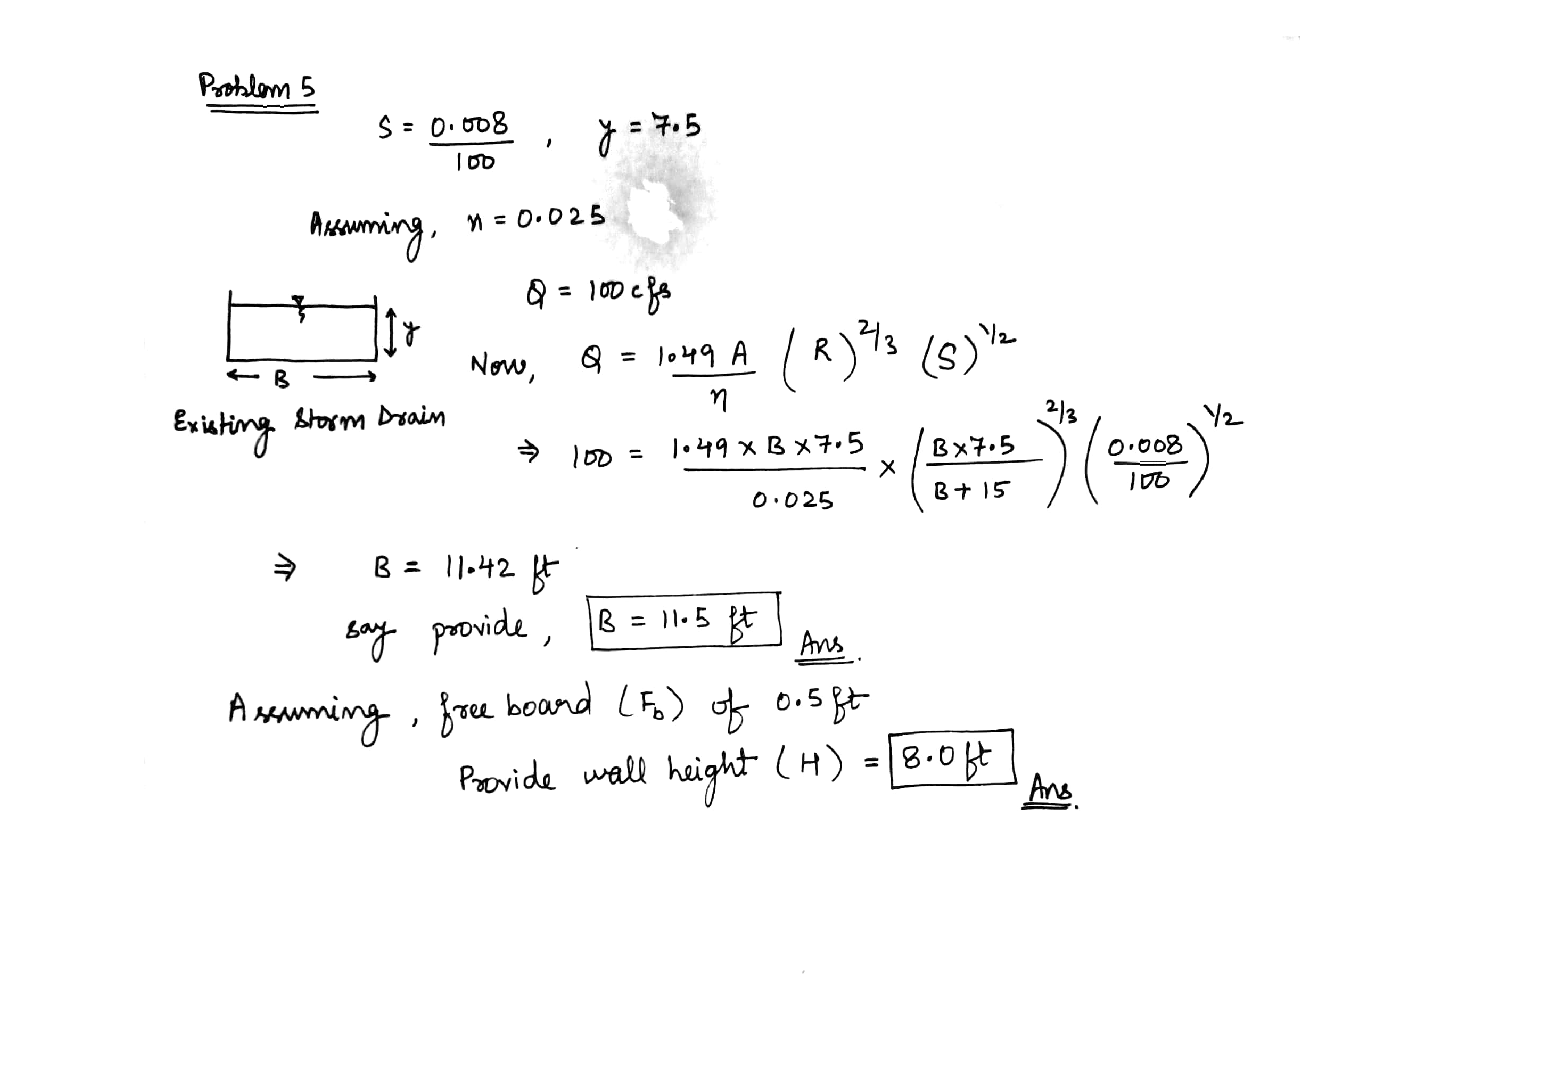 Problem 5
S = 0.008/100 , y = 7.5
Assuming, n = 0.025
Q = 100 cfs
y
B
Existing Storm Drain
Now, Q = 1.49 A/n (R)^2/3 (S)^1/2
⇒ 100 = 1.49 × B × 7.5/0.025 × (B×7.5/B+15)^2/3 (0.008/100)^1/2
⇒ B = 11.42 ft
say provide, B = 11.5 ft Ans.
Assuming, free board (Fb) of 0.5 ft
Provide wall height (H) = 8.0 ft Ans.